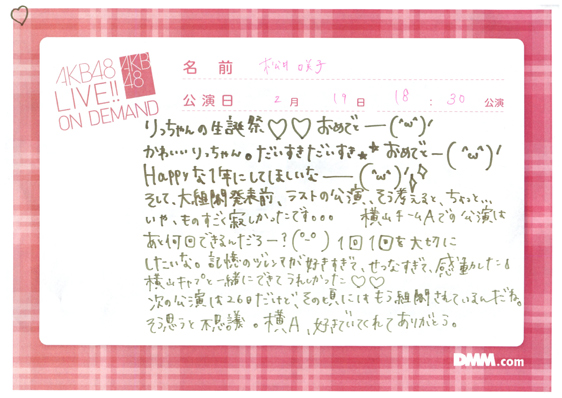 AKB48
LIVE!!
ON DEMAND
AKB
48
名前 松井咲子
公演日 2月 19日 18:30 公演
りっちゃんの生誕祭♡♡ おめでとー(^ω^)!
かわいいりっちゃん。だいすきだいすき★★ おめでとー(^ω^)!
Happyな1年にしてほしいなー(^ω^)!
そして、大組閣発表前、ラストの公演、、そう考えると、ちょっと…
いや、ものすごく寂しかったです。。。 横山チームAでの公演は
あと何回できるんだろー?(°-°) 1回1回を大切に
したいな。記憶のジレンマが好きすぎて、せつなすぎて、感動した!
横山キャプと一緒にできてうれしかった♡♡
次の公演は26日だけど、その頃にはもう組閣されているんだね。
そう思うと不思議。横A、好きでいてくれてありがとう。
DMM.com